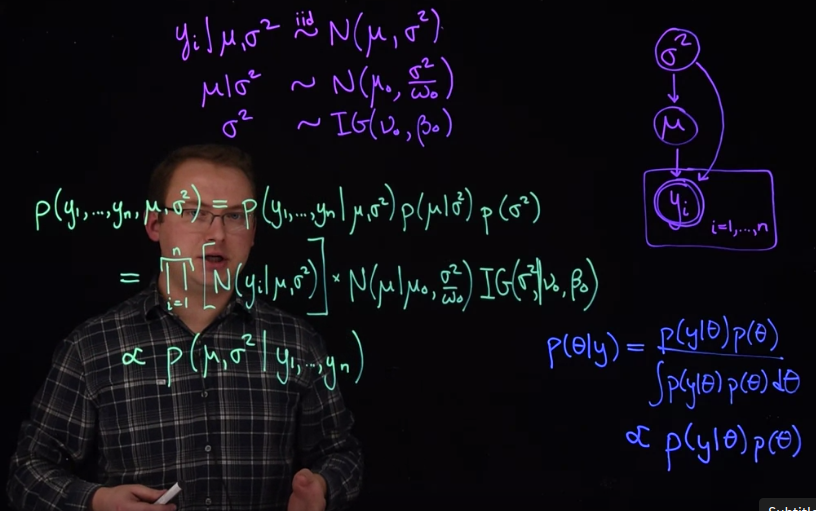 yᵢ | μ,σ² iid ~ N(μ, σ²)
μ|σ² ~ N(μ₀, σ²/ω₀)
σ² ~ IG(ν₀, β₀)
p(y₁,...,yₙ, μ, σ²) = p(y₁,...,yₙ | μ,σ²) p(μ|σ²) p(σ²)
= ∏ᵢ₌₁ⁿ [N(yᵢ|μ,σ²)] × N(μ|μ₀, σ²/ω₀) IG(σ²|ν₀, β₀)
∝ p(μ, σ² | y₁,...,yₙ)
σ²
μ
yᵢ
i=1,...,n
p(θ|y) = p(y|θ) p(θ) / ∫p(y|θ) p(θ) dθ
∝ p(y|θ) p(θ)